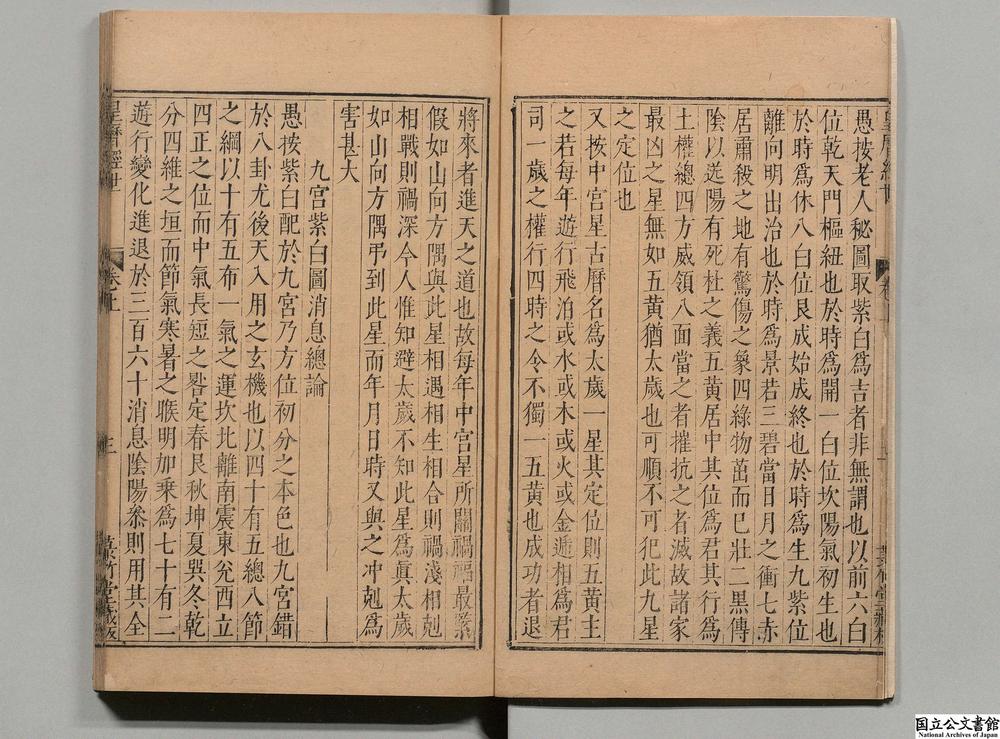 愚按老人秘圖取紫白爲吉者非無謂也以前六白
位乾天門樞紐也於時爲開一白位坎陽氣初生也
於時爲休八白位艮成始成終也於時爲生九紫位
離向明出治也於時爲景若三碧當日月之衝七赤
居肅殺之地有驚傷之象四綠物茁而已壯二黑傳
陰以送陽有死杜之義五黃居中其位爲君其行爲
土權總四方威領八面當之者摧抗之者滅故諸家
最凶之星無如五黃猶太歲也可順不可犯此九星
之定位也
又按中宮星古曆名爲太歲一星其定位則五黃主
之若每年遊行飛泊或水或木或火或金遞相爲君
司一歲之權行四時之令不獨一五黃也成功者退
將來者進天之道也故每年中宮星所關禍福最緊
假如山向方隅與此星相遇相生相合則禍淺相剋
相戰則禍深今人惟知避太歲不知此星爲眞太歲
如山向方隅弔到此星而年月日時又與之冲剋爲
害甚大
九宮紫白圖消息總論
愚按紫白配於九宮乃方位初分之本色也九宮錯
於八卦尤後天入用之玄機也以四十有五總八節
之綱以十有五布一氣之運坎北離南震東兊西立
四正之位而中氣長短之晷定春艮秋坤夏巽冬乾
分四維之垣而節氣寒暑之𠋫明加乘爲七十有二
遊行變化進退於三百六十消息陰陽叅則用其全
卷上
國立公文書館
National Archives of Japan